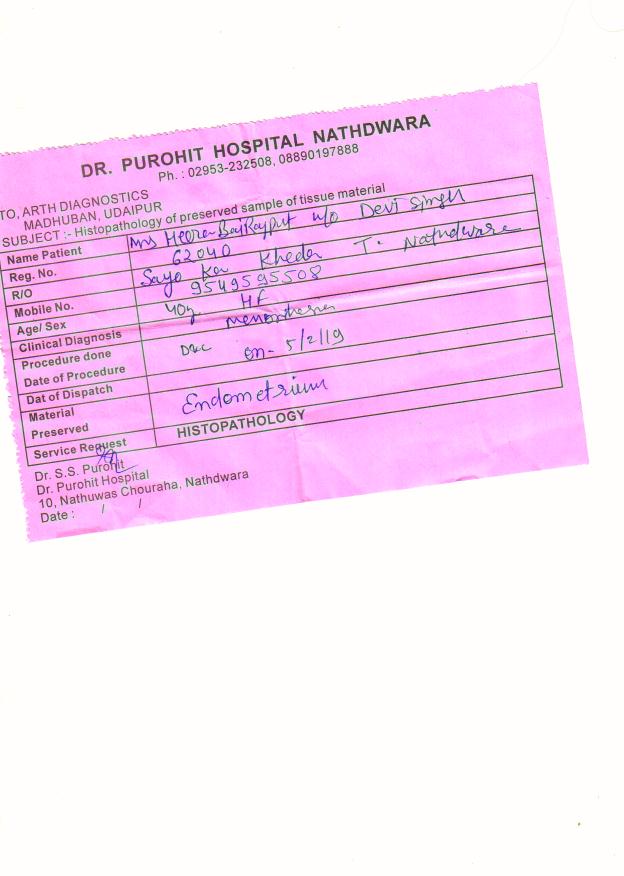 DR. PUROHIT HOSPITAL NATHDWARA
Ph. : 02953-232508, 08890197888
TO, ARTH DIAGNOSTICS
MADHUBAN, UDAIPUR
SUBJECT :- Histopathology of preserved sample of tissue material
Name Patient Mrs Heera Bai Rajput w/o Devi Singh
Reg. No. 62040
R/O Sayo Ka Kheda T. Nathdwara
Mobile No. 9549595508
Age/ Sex 40y HF
Clinical Diagnosis
Procedure done D&C
Date of Procedure on- 5/2/19
Dat of Dispatch
Material
Preserved Endometrium
Service Request HISTOPATHOLOGY
Dr. S.S. Purohit
Dr. Purohit Hospital
10, Nathuwas Chouraha, Nathdwara
Date : / /